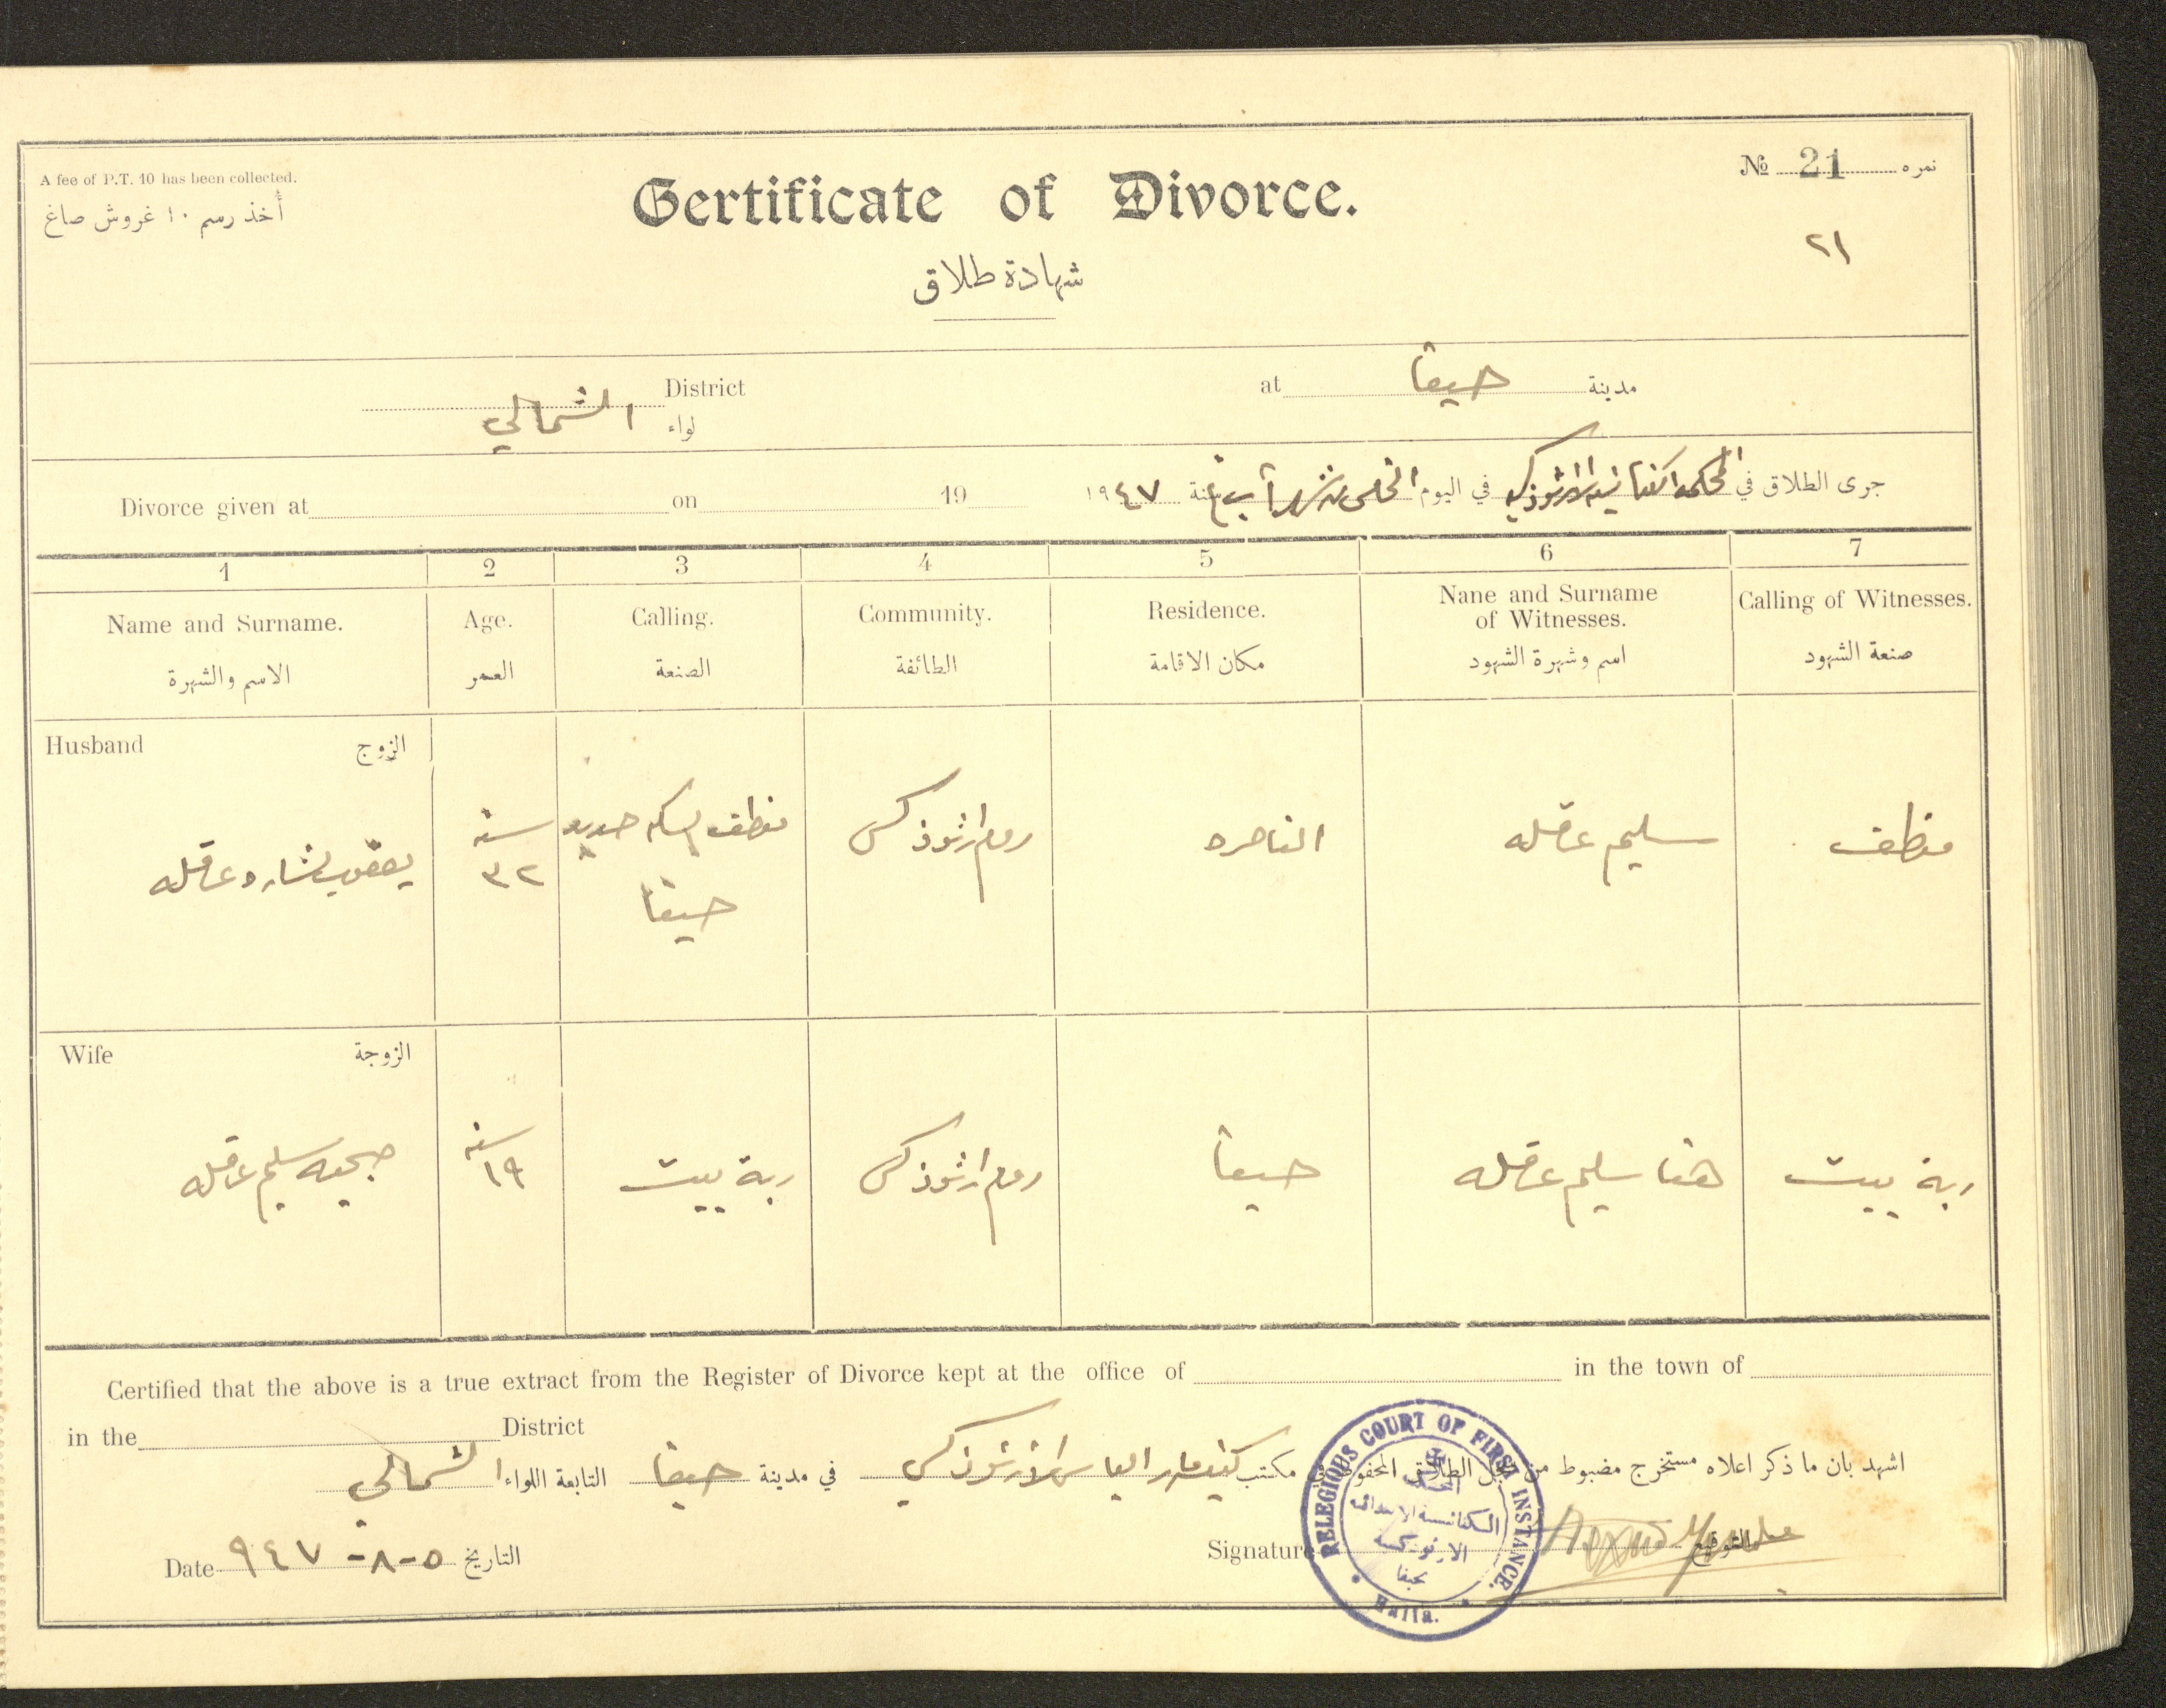 A fee of P.T. 10 has been collected.
أخذ رسم ١٠ غروش صاغ
Certificate of Divorce.
شهادة طلاق
№ 21 نمره
٢١
District
لواء الشمالي
at حيفا مدينة
جرى الطلاق في المحكمة الكنائسية الارثوذكسية في اليوم الخامس من شهر آب سنة ١٩٤٧
Divorce given at on 19
1 2 3 4 5 6 7
Name and Surname. Age. Calling. Community. Residence. Nane and Surname of Witnesses. Calling of Witnesses.
الاسم والشهرة العمر الصنعة الطائفة مكان الاقامة اسم وشهرة الشهود صنعة الشهود
Husband الزوج
يعقوب بشاره عاقله
سنة ٣٢
سكة حديد
حيفا
روم ارثوذكس
الناصره
سليم عاقله
Wife الزوجة
سليم عاقله
سنة ١٩
ربة بيت
روم ارثوذكس
حيفا
هنا سليم عاقله
ربة بيت
Certified that the above is a true extract from the Register of Divorce kept at the office of in the town of
in the District
اشهد بان ما ذكر اعلاه مستخرج مضبوط من سجل الطلاق المحفوظ في مكتب كنيسة مار الياس الارثوذكسي في مدينة حيفا التابعة اللواء الشمالي
Date ٥-٨-٩٤٧ التاريخ
Signature التوقيع
RELEGIOUS COURT OF FIRST INSTANCE.
Haifa.
المحكمة
الكنائسية الابتدائية
الارثوذكسية
بحيفا